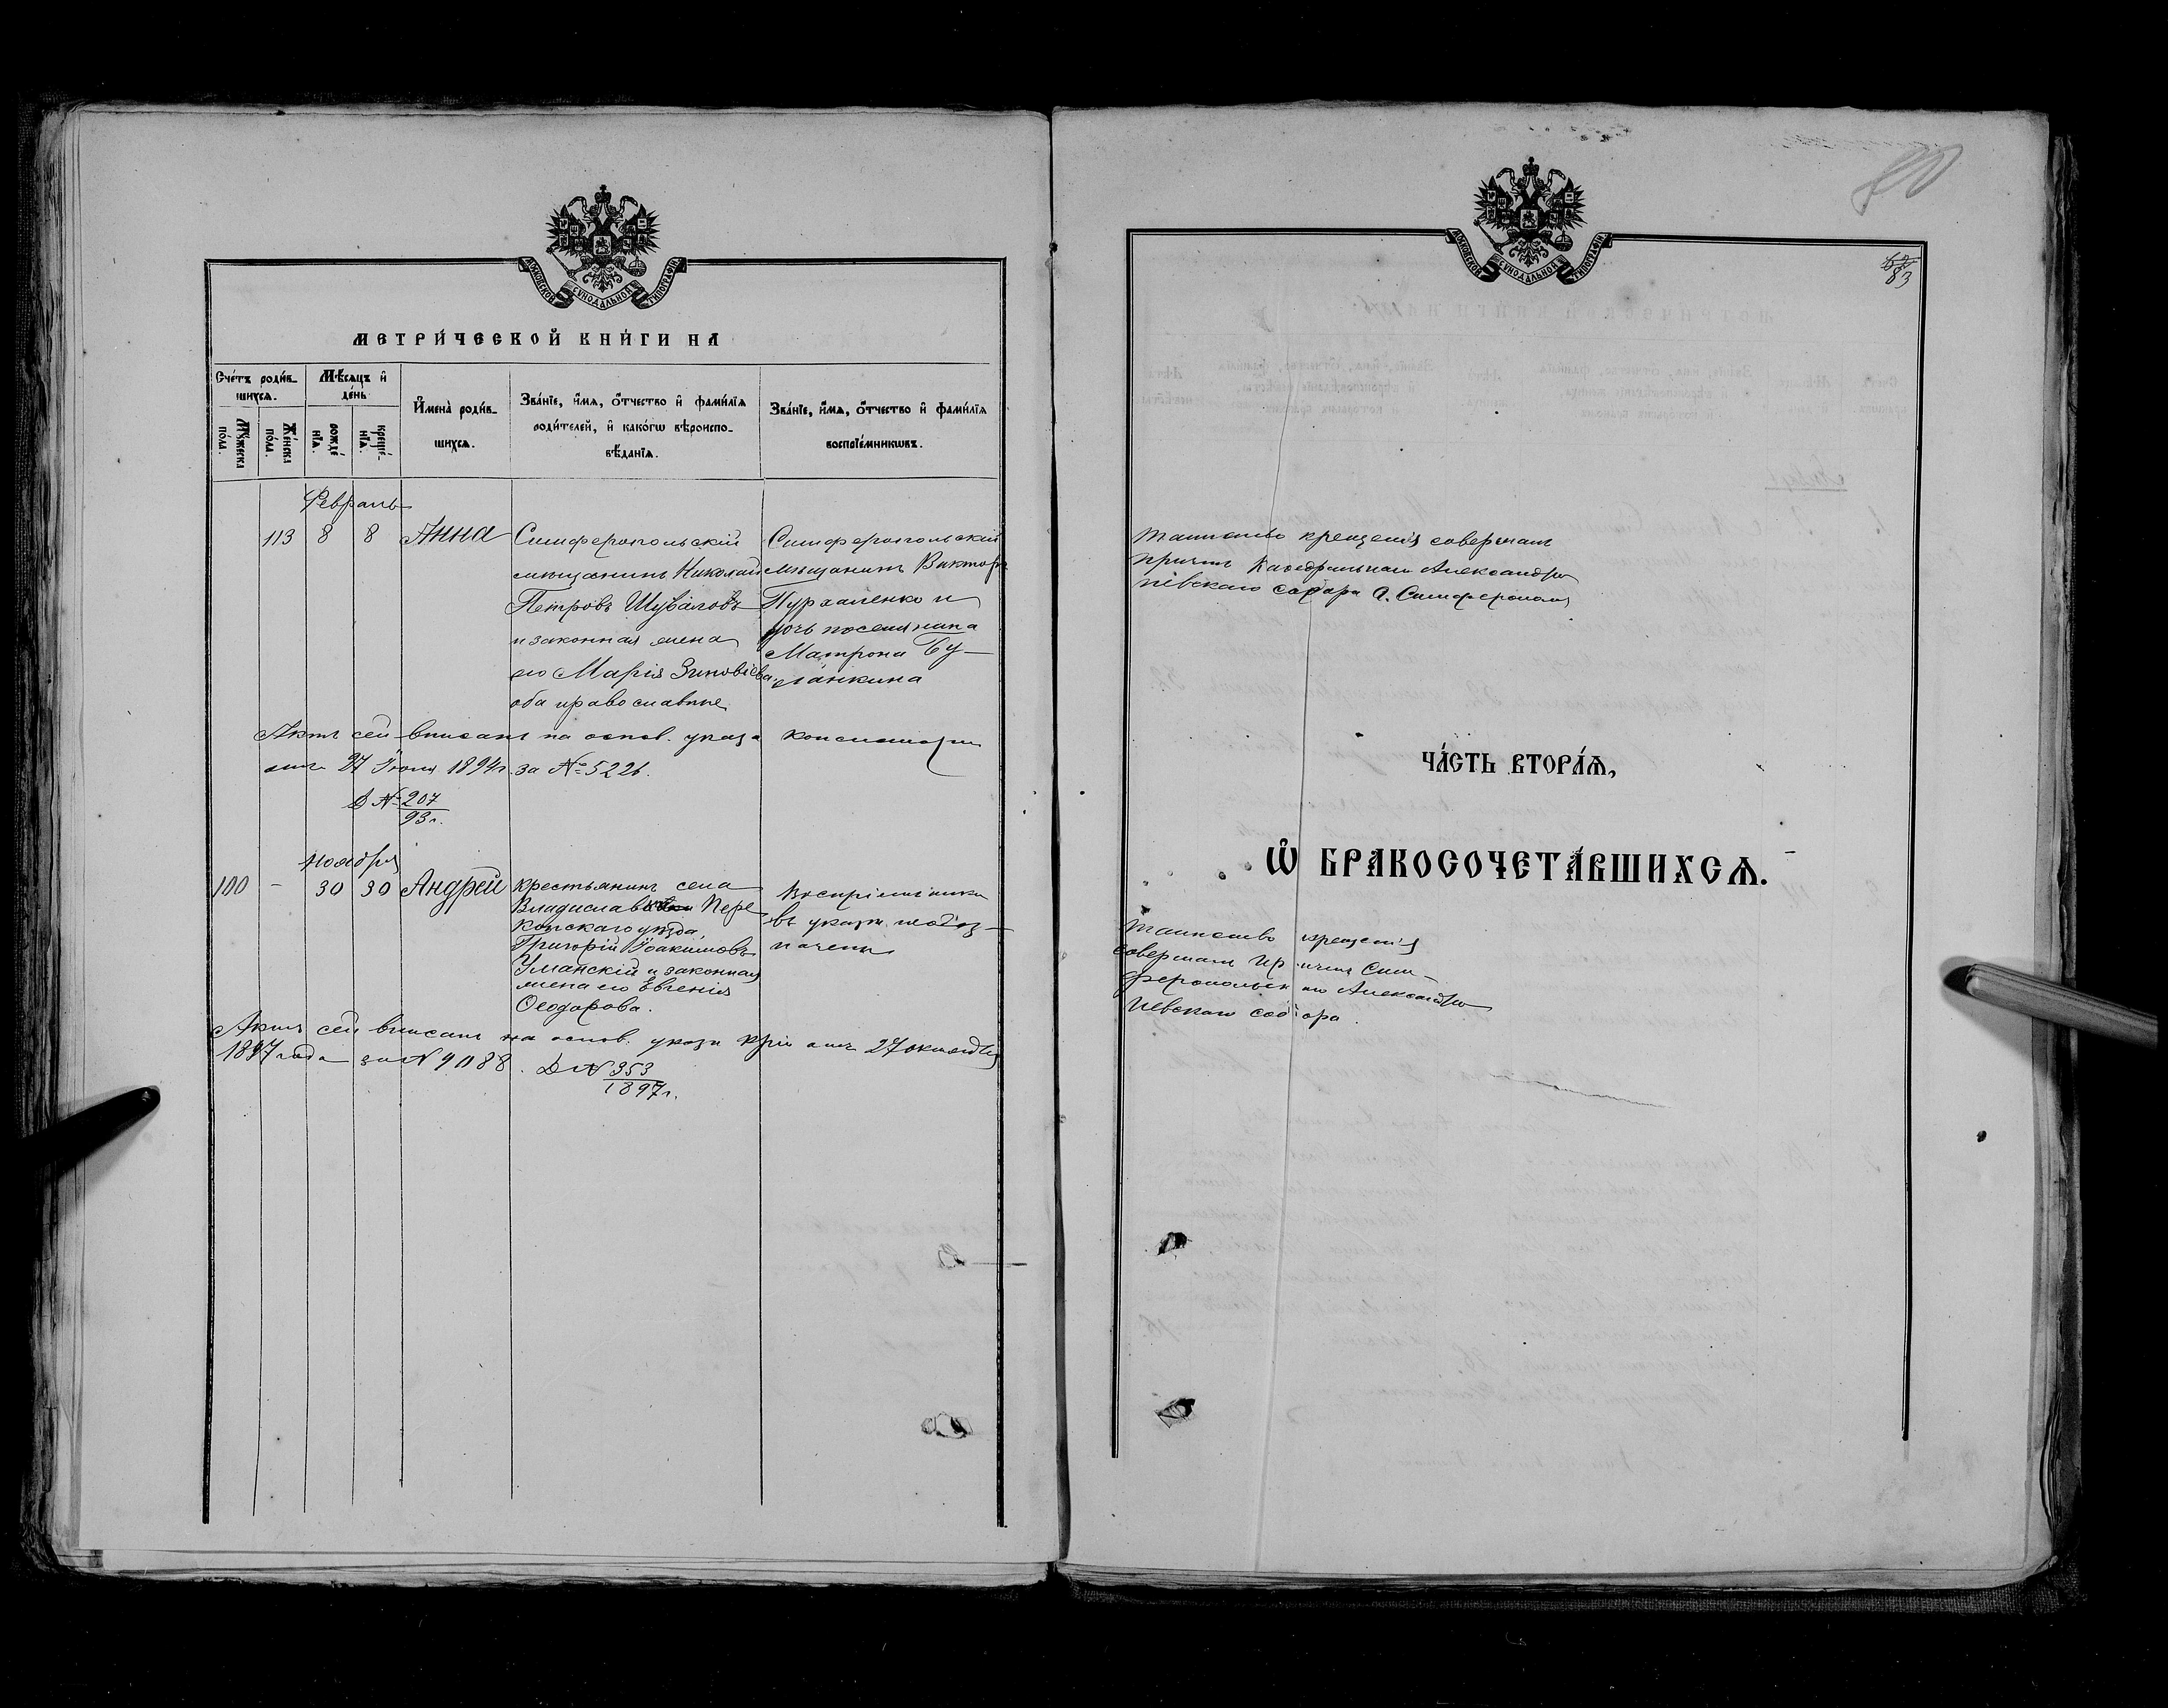 МОСКОВСКОЙ СѴНОДАЛЬНОЙ ТИПОГРАФІИ
МЕТРИ́ЧЕСКОЙ КНИ́ГИ НА
Сче́тъ роди́в-
шихсѧ.
Мѣ́сѧцъ и҆
де́нь
Мꙋ́жеска
по́ла.
Же́нска
по́ла.
рожде́
нїѧ.
креще́-
нїѧ.
И҆мена̀ роди́в-
шихсѧ.
Зва́нїе, и҆́мѧ, ѻ҆́тчество и҆ фами́лїѧ
роди́телей, и҆ како́гѡ вѣроиспо-
вѣ́данїѧ.
Зва́нїе, и҆́мѧ, ѻ҆́тчество и҆ фами́лїѧ
воспрїе́мникѡвъ.
Февраль
113 8 8 Анна
Симферопольскій
мѣщанинъ Николай
Петровъ Шуваловъ
и законная жена
его Марія Зиновіева
оба православные
Симферопольскій
мѣщанинъ Викторъ
и
дочь поселянина
Матрона Бу-
ланкина
Актъ сей вписанъ на основ. указа консисторіи
отъ 27 Іюля 1894 г. за № 5226.
Д № 207
93 г.
Ноября
100 - 30 30 Андрей
Крестьянинъ села
Владиславовки Пере
копскаго уѣзда,
Григорій Іоакимовъ
Уманскій и законная
жена его Евгенія
Ѳеодорова.
Воспріемники
въ указѣ не обоз-
начены
Актъ сей вписанъ на основ. указа Кріи отъ 27 октября
1897 года за № 9088. Д № 353
1897 г.
МОСКОВСКОЙ СѴНОДАЛЬНОЙ ТИПОГРАФІИ
83
Таинство крещенія совершалъ
причтъ Каѳедральнаго Александро
невскаго собора г. Симферополя
ЧА́СТЬ ВТОРА́Ѧ,
Ѽ БРАКОСОЧЕТА́ВШИХСѦ.
Таинство крещенія
совершалъ причтъ Сим-
феропольскаго Александро
Невскаго собора.